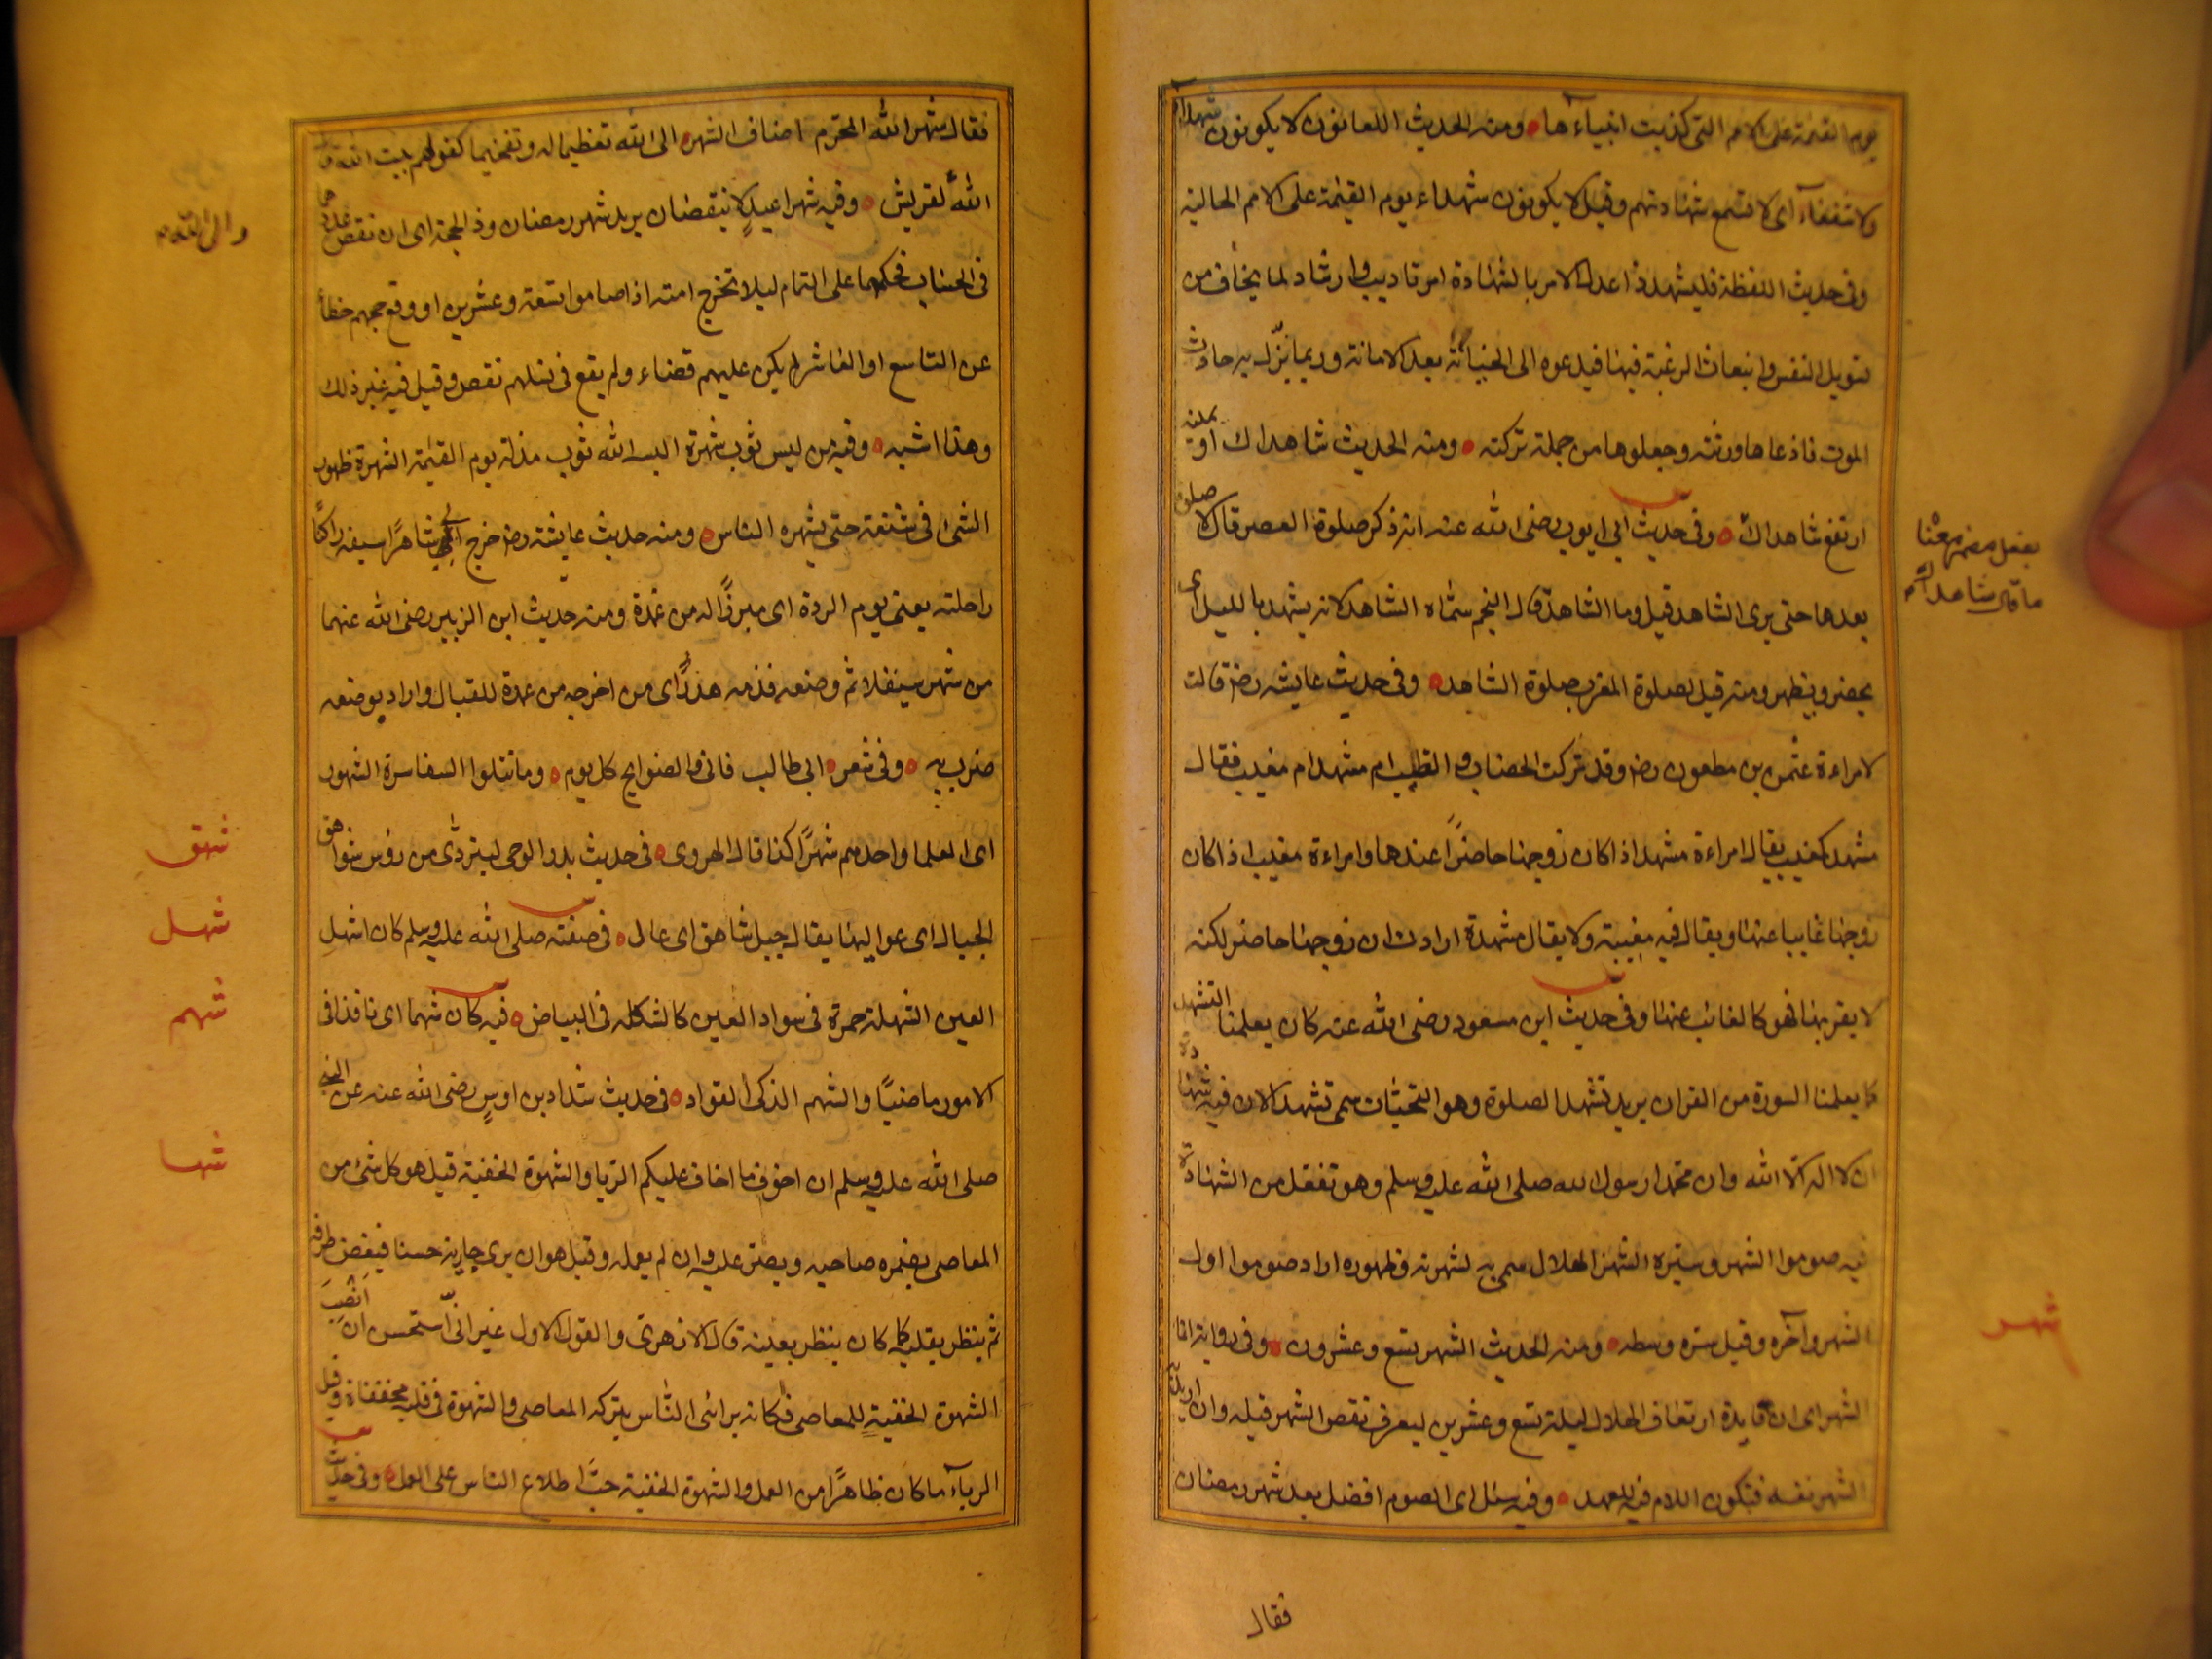 يوم القيمة على الامم التى كذبت انبياءها ومنه الحديث اللعانون لا يكونون شهدآء
ولا شفعآء اى لا تسمع شهادتهم وقيل لا يكونون شهداء يوم القيمة على الامم الخالية
وفى حديث اللقطة فليشهد ذا عدل الامر بالشهادة امر تاديب وارشاد لما يخاف من
تسويل النفس وانبعاث الرغبة فيها فيدعوه الى الخيانة بعد الامانة وربما نزل به حادث
الموت فادعاها ورثته وجعلوها من جملة تركته ومنه الحديث شاهداك او يمينه
ارتفع شاهداك وفى حديث ابي ايوب رضى الله عنه انه ذكر صلوة العصر قال لا صلوة
بعدها حتى يرى الشاهد قيل وما الشاهد قال النجم سماه الشاهد لانه يشهد بالليل اى
يحضر ويظهر ومنه قيل لصلوة المغرب صلوة الشاهد وفى حديث عايشه رضه قالت
لامراءة عثمن بن مظعون رضه وقد تركت الخضاب والطيب ام مشهد ام مغيب فقال
مشهد كمغيب يقال امراءة مشهد اذا كان زوجها حاضرًا عندها وامراءة مغيب اذا كان
زوجها غايبا عنها ويقال فيه مغيبة ولا يقال مشهدة ارادت ان زوجها حاضر لكنه
لا يقربها فهو كالغائب عنها وفى حديث ابن مسعود رضى الله عنه كان يعلمنا التشهد
كما يعلمنا السورة من القران يريد تشهد الصلوة وهو التحيات سمى تشهدا لان فيه شهادة
ان لا اله الا الله وان محمدا رسول الله صلى الله عليه وسلم وهو تفعل من الشهادة
فيه صوموا الشهر وستره الشهر الهلال سمى به لشهرته وظهوره اراد صوموا اول
الشهر وآخره وقيل سره وسطه ومنه الحديث الشهر تسع وعشرون وفى رواية انما
الشهر اى ان فايدة ارتقاب الهلال ليلة تسع وعشرين ليعرف نقص الشهر قبله وان اريد به
الشهر نفسه فيكون اللام فيه للعهد وفيه سئل اى الصوم افضل بعد شهر رمضان
بفعل مضمر معناه
ما قال شاهداك
شهر
فقال
فقال شهر الله المحرم اضاف الشهر الى الله تعظيما له وتفخيما كقولهم بيت الله وال
الله لقريش وفيه شهرا عيد لا ينقصان يريد شهر رمضان وذا الحجة اى ان نقص عددهما
فى الحساب فحكمهما على التمام ليلا تخرج امته اذا صاموا تسعة وعشرين او وقع حجهم خطأ
عن التاسع او العاشر لم يكن عليهم قضاء ولم يقع فى نسكهم نقص وقيل فيه غير ذلك
وهذا اشبه وفيه من لبس ثوب شهرة البسه الله ثوب مذلة يوم القيمة الشهرة ظهور
الشئ فى شنعة حتى يشهره الناس ومنه حديث عايشة رضه خرج ابي شاهرًا سيفه راكبًا
راحلته يعنى يوم الردة اى مبرزًا له من غمده ومنه حديث ابن الزبير رضى الله عنهما
من شهر سيفه ثم وضعه فدمه هدرٌ اى من اخرجه من غمده للقتال واراد بوضعه
ضرب به وفى شعر ابى طالب فانى والضوابح كل يوم وما تتلوا السفاسرة الشهور
اى العلما واحدهم شهرٌ كذا قال الهروى فى حديث بدو الوحى ليتردى من رؤس شواهق
الجبال اى عواليها يقال جبل شاهق اى عال فى صفته صلى الله عليه وسلم كان اشهل
العين الشهلة حمرة فى سواد العين كالشكلة فى البياض فيه كان شهما اى نافذا فى
الامور ماضيًا والشهم الذكى الفواد فى حديث شداد بن اوسٍ رضى الله عنه عن النبى
صلى الله عليه وسلم ان اخوف ما اخاف عليكم الريا والشهوة الخفية قيل هو كل شئ من
المعاصى يضمره صاحبه ويصر عليه وان لم يعمله وقيل هو ان يرى جارية حسنا فيغض طرفه
ثم ينظر بقلبه كما كان ينظر بعينه قال الازهرى والقول الاول غير انى استحسن ان انصب
الشهوة الخفية للمعاصى فكانه يرائى الناس بتركه المعاصى والشهوة فى قلبه مخفاة وقيل
الرياء ما كان ظاهرًا من العمل والشهوة الخفية حب اطلاع الناس على العمل وفى حديث
وال الله
شهق
شهل
شهم
شها